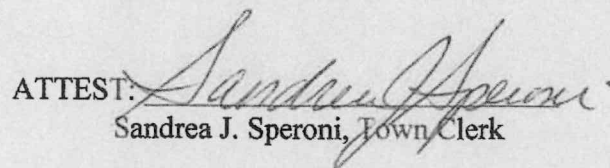 ATTEST: Sandrea J Speroni
Sandrea J. Speroni, Town Clerk